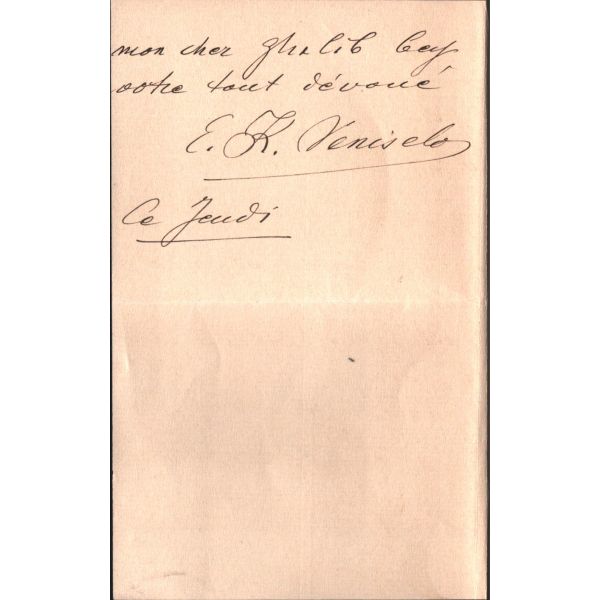 mon cher Ghalib bey
votre tout dévoué
E. K. Veniselo
Ce Jeudi